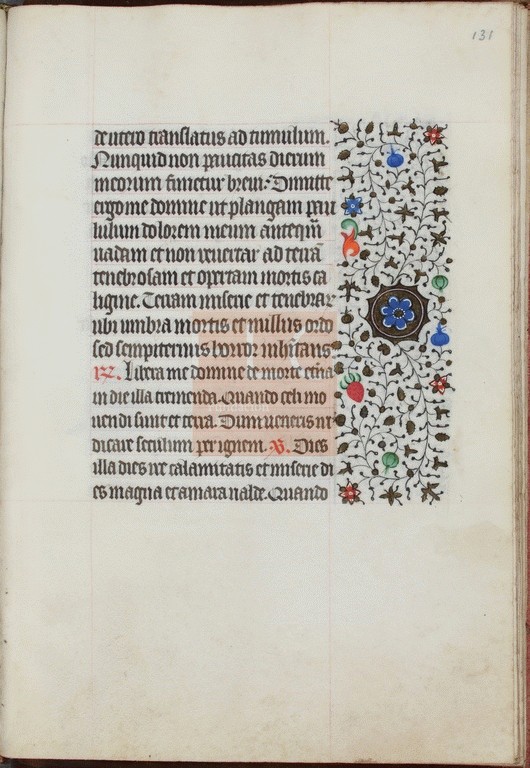 131
de utero translatus ad tumulum.
Nunquid non paucitas dierum
meorum finietur brevi: Dimitte
ergo me domine ut plangam pau
lulum dolorem meum anteqm̄
uadam et non reuertar ad terrā
tenebrosam et opertam mortis ca
ligine. Terram miserie et tenebrar̄
ubi umbra mortis et nullus ordo
sed sempiternus horror inhītans
R. Libera me domine de morte etn̄a
in die illa tremenda. Quando celi mo
uendi sunt et terra. Dum ueneris iu
dicare seculum per ignem. V. Dies
illa dies ire calamitatis et miserie di
es magna et amara ualde. Quando
Fundación